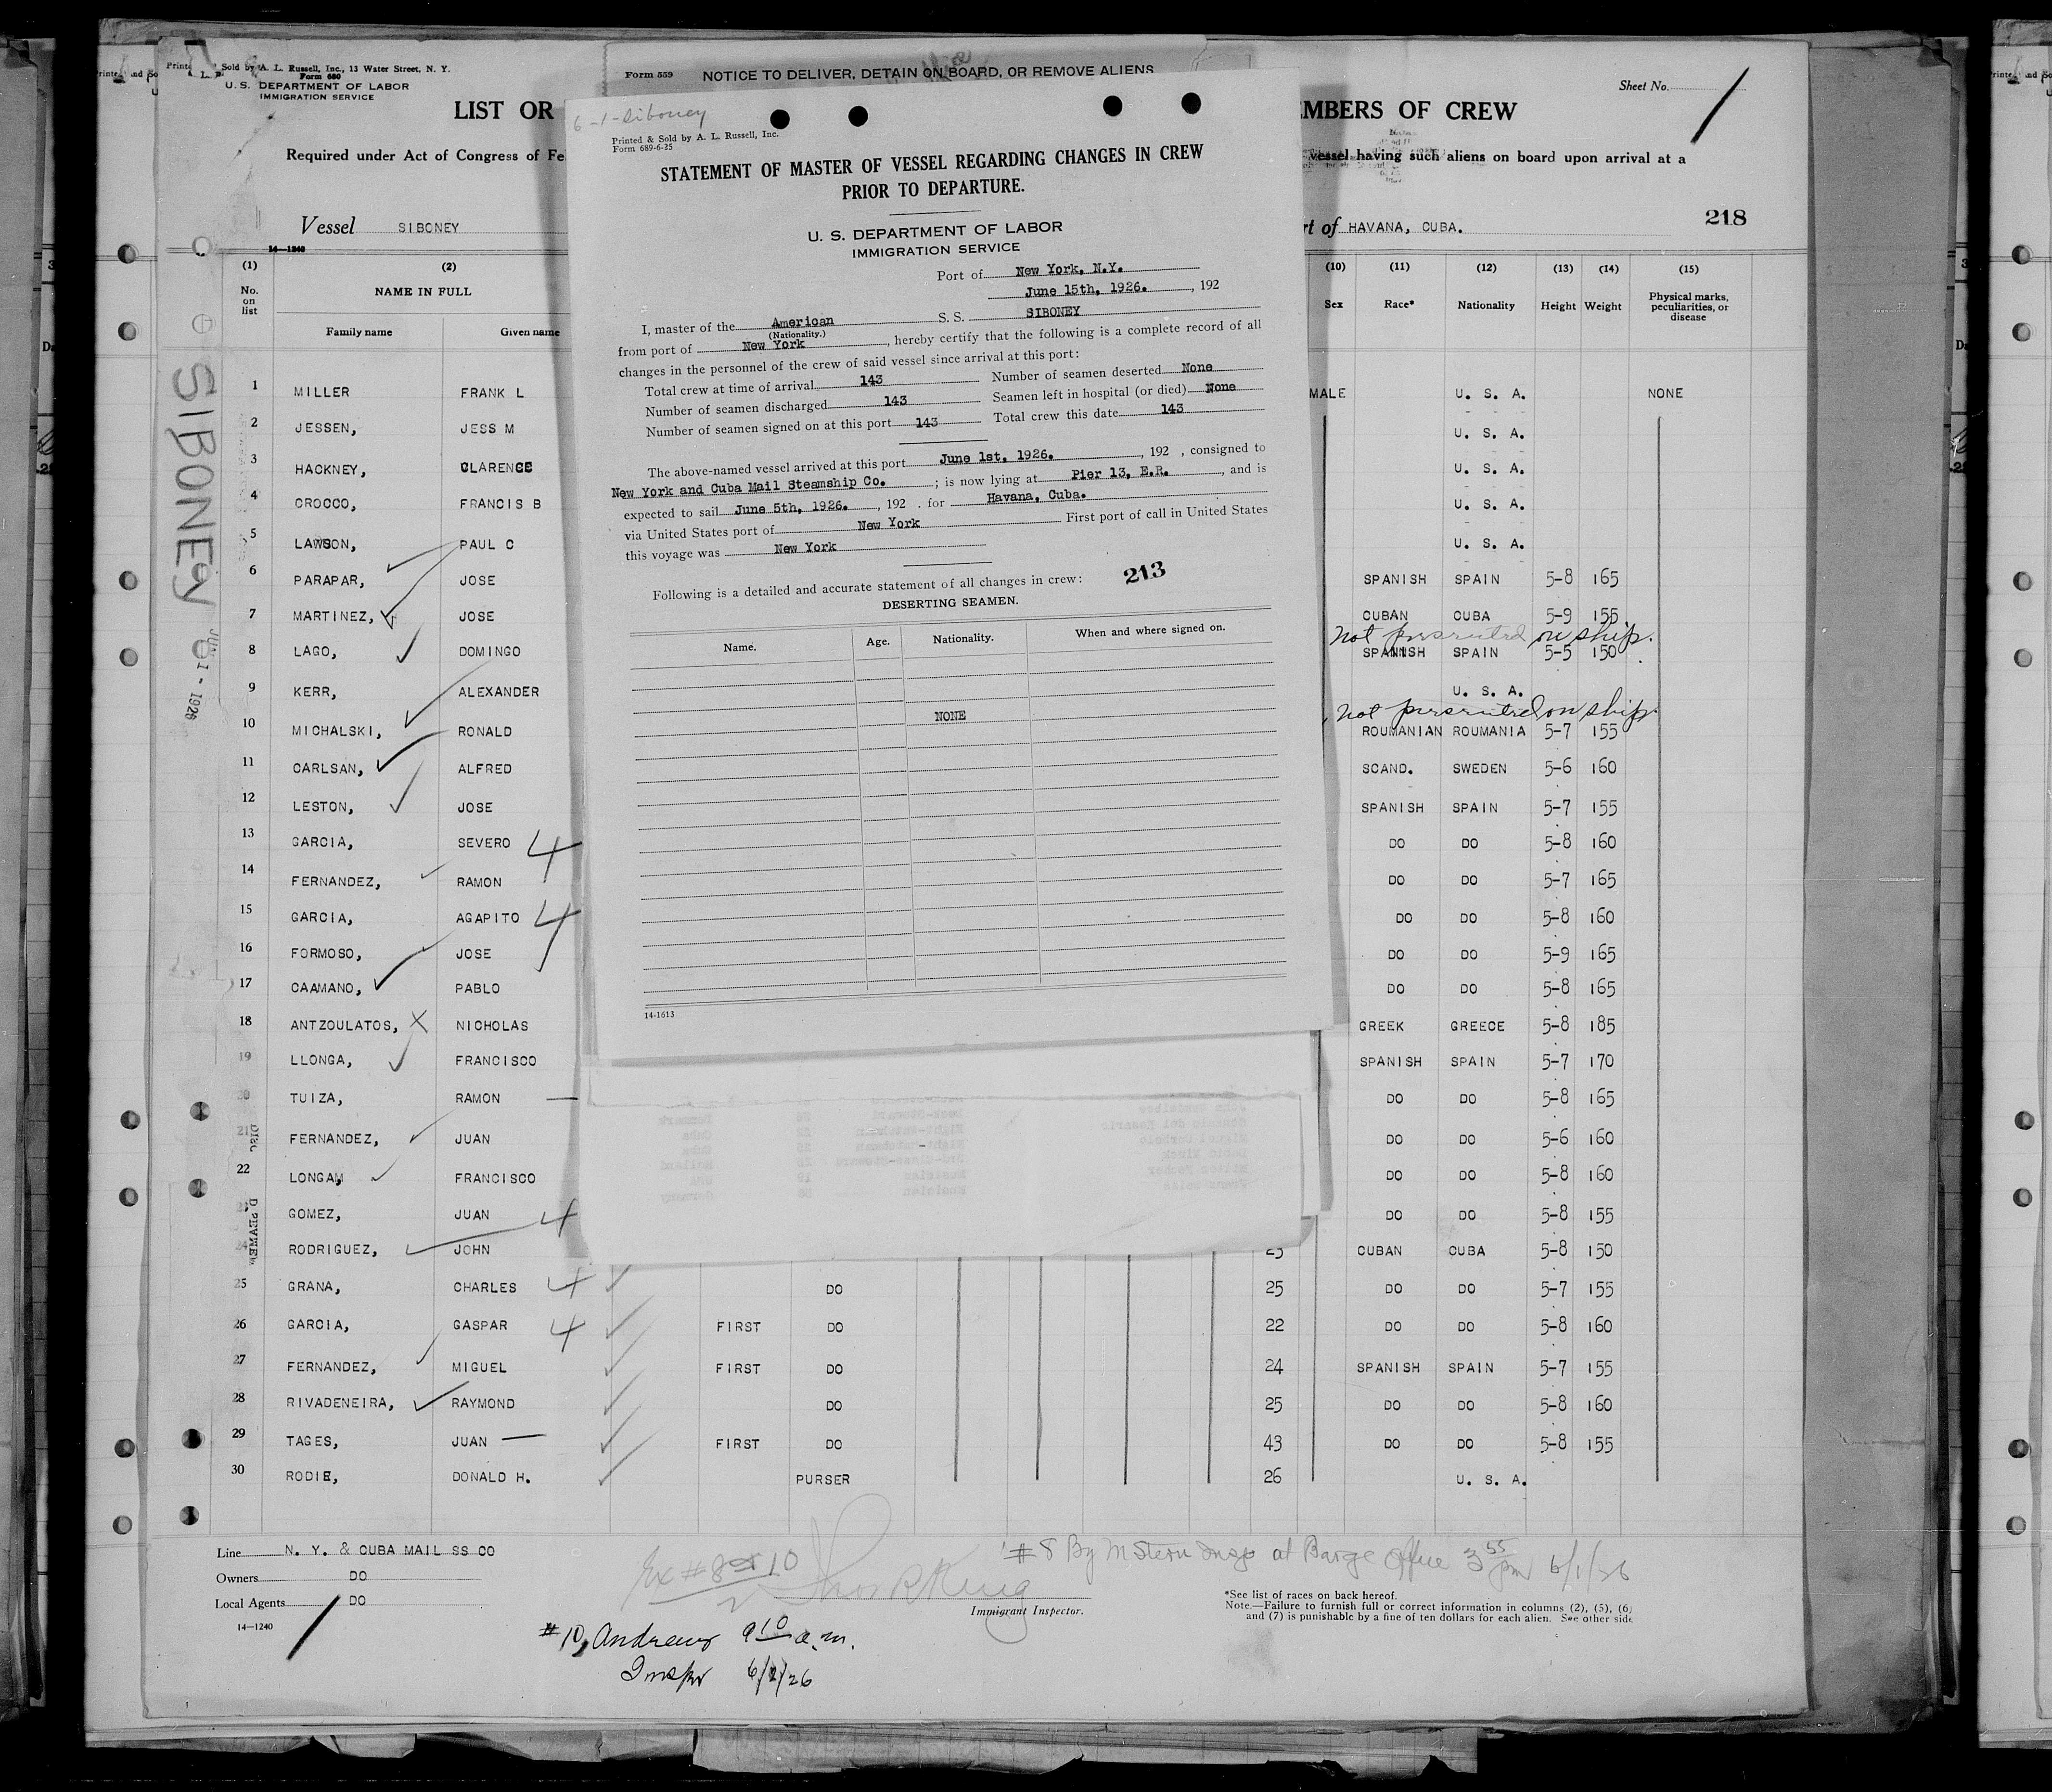 Sold by A. L. Russell, Inc., 13 Water Street, N. Y.
Form 680
U. S. DEPARTMENT OF LABOR
IMMIGRATION SERVICE
LIST OR
Required under Act of Congress of Fe
Vessel SIBONEY
14-1240
(1) (2)
No. on list
NAME IN FULL
Family name Given name
1 MILLER FRANK L
2 JESSEN, JESS M
3 HACKNEY, CLARENCE
4 CROCCO, FRANCIS B
5 LAWSON, PAUL C
6 PARAPAR, JOSE
7 MARTINEZ, JOSE
8 LAGO, DOMINGO
9 KERR, ALEXANDER
10 MICHALSKI, RONALD
11 CARLSAN, ALFRED
12 LESTON, JOSE
13 GARCIA, SEVERO
14 FERNANDEZ, RAMON
15 GARCIA, AGAPITO
16 FORMOSO, JOSE
17 CAAMANO, PABLO
18 ANTZOULATOS, NICHOLAS
19 LLONGA, FRANCISCO
20 TUIZA, RAMON
21 FERNANDEZ, JUAN
22 LONGA, FRANCISCO
23 GOMEZ, JUAN
24 RODRIGUEZ, JOHN
25 GRANA, CHARLES DO 25
26 GARCIA, GASPAR FIRST DO 22
27 FERNANDEZ, MIGUEL FIRST DO 24
28 RIVADENEIRA, RAYMOND DO 25
29 TAGES, JUAN FIRST DO 43
30 RODIE, DONALD H. PURSER 26
SIBONEY
JUN 1 - 1926
Line N. Y. & CUBA MAIL SS CO
Owners DO
Local Agents DO
14-1240
Form 559 NOTICE TO DELIVER, DETAIN ON BOARD, OR REMOVE ALIENS
6-1-Siboney
Printed & Sold by A. L. Russell, Inc.
Form 689-6-25
STATEMENT OF MASTER OF VESSEL REGARDING CHANGES IN CREW
PRIOR TO DEPARTURE.
U. S. DEPARTMENT OF LABOR
IMMIGRATION SERVICE
Port of New York, N.Y.
June 15th, 1926. , 192
I, master of the American S. S. SIBONEY
(Nationality.)
from port of New York , hereby certify that the following is a complete record of all
changes in the personnel of the crew of said vessel since arrival at this port:
Total crew at time of arrival 143 Number of seamen deserted None
Number of seamen discharged 143 Seamen left in hospital (or died) None
Number of seamen signed on at this port 143 Total crew this date 143
The above-named vessel arrived at this port June 1st, 1926. , 192 , consigned to
New York and Cuba Mail Steamship Co. ; is now lying at Pier 13, E.R. , and is
expected to sail June 5th, 1926. , 192 . for Havana, Cuba.
via United States port of New York First port of call in United States
this voyage was New York
Following is a detailed and accurate statement of all changes in crew: 213
DESERTING SEAMEN.
Name. Age. Nationality. When and where signed on.
NONE
14-1613
Sheet No.
MBERS OF CREW
vessel having such aliens on board upon arrival at a
rt of HAVANA, CUBA. 218
(10) (11) (12) (13) (14) (15)
Sex Race* Nationality Height Weight Physical marks, peculiarities, or disease
MALE U. S. A. NONE
U. S. A.
U. S. A.
U. S. A.
U. S. A.
SPANISH SPAIN 5-8 165
CUBAN CUBA 5-9 155
Not presented on ship.
SPANISH SPAIN 5-5 150
U. S. A.
Not presented on ship.
ROUMANIAN ROUMANIA 5-7 155
SCAND. SWEDEN 5-6 160
SPANISH SPAIN 5-7 155
DO DO 5-8 160
DO DO 5-7 165
DO DO 5-8 160
DO DO 5-9 165
DO DO 5-8 165
GREEK GREECE 5-8 185
SPANISH SPAIN 5-7 170
DO DO 5-8 165
DO DO 5-6 160
DO DO 5-8 160
DO DO 5-8 155
CUBAN CUBA 5-8 150
DO DO 5-7 155
DO DO 5-8 160
SPANISH SPAIN 5-7 155
DO DO 5-8 160
DO DO 5-8 155
U. S. A.
Ex #8 10
#8 By M Stern Insp at Barge Office 3 55 pm 6/1/26
Immigrant Inspector.
#10, Andrews 9 10 a.m.
Inspr 6/2/26
*See list of races on back hereof.
Note.—Failure to furnish full or correct information in columns (2), (5), (6)
and (7) is punishable by a fine of ten dollars for each alien. See other side